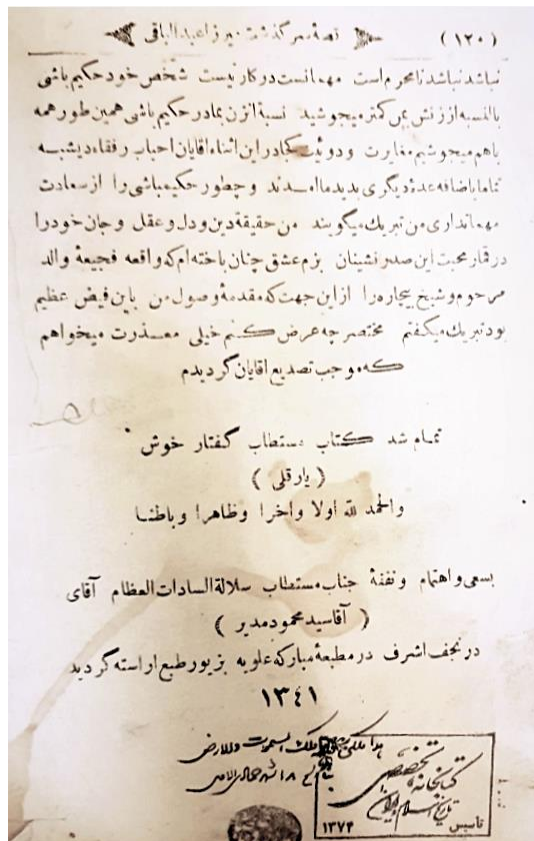 (۱۲۰) قصهٔ سرگذشت میرزا عبدالباقی
نباشد نباشد نامحرم است مهمانست در کار نیست شخص خود حکیم باشی
بالنسبه از زنش بمن کمتر میجوشید نسبة انزن بمادر حکیم باشی همین طور همه
باهم میجوشیم مغایرت و دوئیت کجا در این اثناء اقایان احباب رفقاء دیشبه
تماما باضافه عدهٔ دیگری بدید ما امدند و چطور حکیم باشی را از سعادت
مهمانداری من تبریك میگویند من حقیقة دین و دل و عقل و جان خود را
در قمار محبت این صدر نشینان بزم عشق چنان باخته ام که واقعه فجیعهٔ والد
مرحوم و شیخ بیچاره را از این جهت که مقدمهٔ وصول من باین فیض عظیم
بود تبریك میگفتم مختصر چه عرض کنم خیلی معذرت میخواهم
که موجب تصدیع اقایان گردیدم
تمام شد کتاب مستطاب گفتار خوش
( یارقلی )
والحمد لله اولا واخرا وظاهرا وباطنا
بسعی و اهتمام ونفقهٔ جناب مستطاب سلالة السادات العظام آقای
( آقا سید محمود مدیر )
در نجف اشرف در مطبعهٔ مبارکه علویه بزیور طبع اراسته گردید
۱۳٤۱
ملك السموات والارض
کتابخانه تخصصی
تاریخ اسلام و ایران
تاسیس ۱۳۷۴